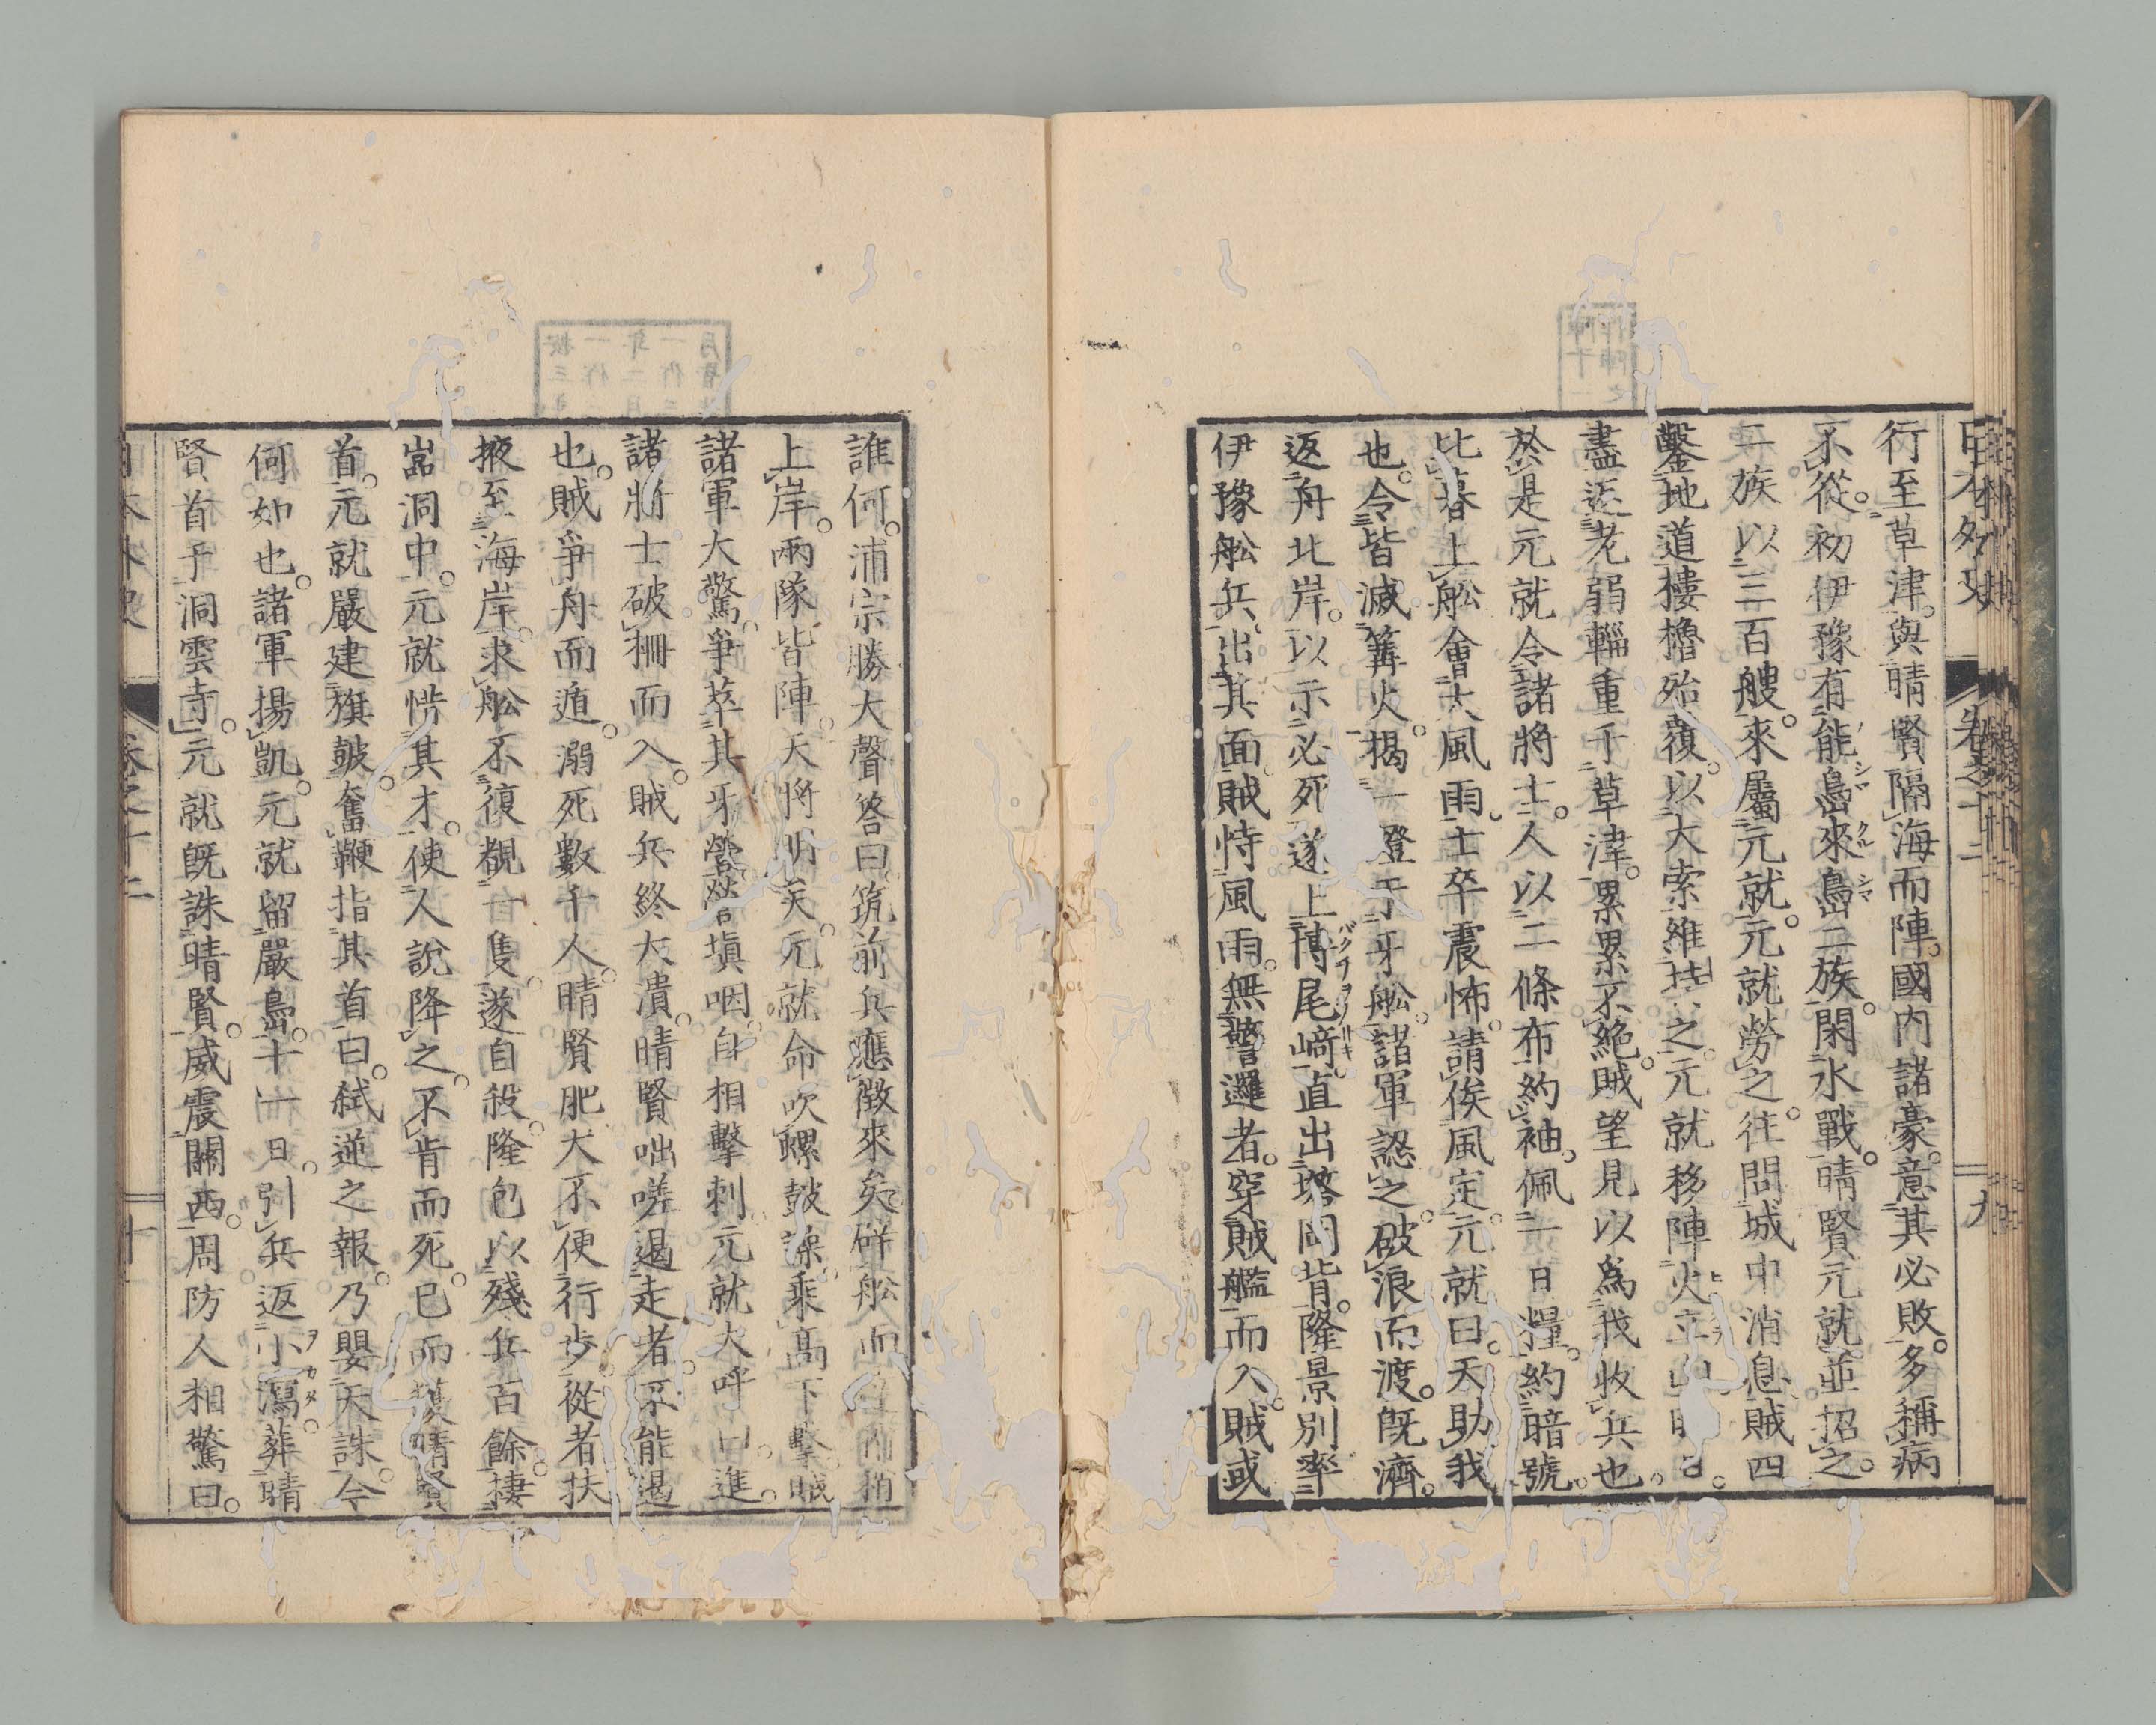 行至草津。與晴賢隔海而陣。國内諸豪。意其必敗。多稱病
不從。初伊豫有能島來島二族。閑水戰。晴賢元就並招之。
二族以三百艘。來屬元就。元就勞之。往問城中消息。賊四
鑿地道。樓櫓殆覆。以大索維持之。元就移陣火立
盡返老弱輜重于草津。累累不絶。賊望見以爲我收兵也。
於是元就令諸將士。人以二條布約袖。佩一日糧。約暗號。
比暮上舩。會大風雨。士卒震怖。請俟風定。元就曰。天助我
也。令皆滅篝火。揭一燈于牙舩。諸軍認之。破浪而渡。既濟。
返舟北岸。以示必死。遂上博尾﨑。直出塔岡背。隆景別率
伊豫舩兵。出其面。賊恃風雨。無警邏者。穿賊艦而入。賊或
誰何。浦宗勝大聲答曰。筑前兵應徵來矣。舩而
上岸。兩隊皆陣。天將明矣。元就命吹螺鼓譟。乘高下擊賊
諸軍大驚。爭萃其牙營。營塡咽。自相擊刺。元就大呼曰。進。
諸將士破柵而入。賊兵終大潰。晴賢咄嗟遏走者。不能遏
也。賊爭舟而遁。溺死數千人。晴賢肥大不便行步。從者扶
掖至海岸。求舩不復覩一隻。遂自殺。隆包以殘兵百餘。棲
嵓洞中。元就惜其才。使人說降之。不肯而死。已而獲晴賢
首。元就嚴建旗皷。奮鞭指其首曰。弑逆之報。乃嬰天誅。今
何如也。諸軍揚凱。元就留嚴島。十一日。引兵返小瀉。葬晴
賢首于洞雲寺。元就既誅晴賢。威震關西。周防人相驚曰。